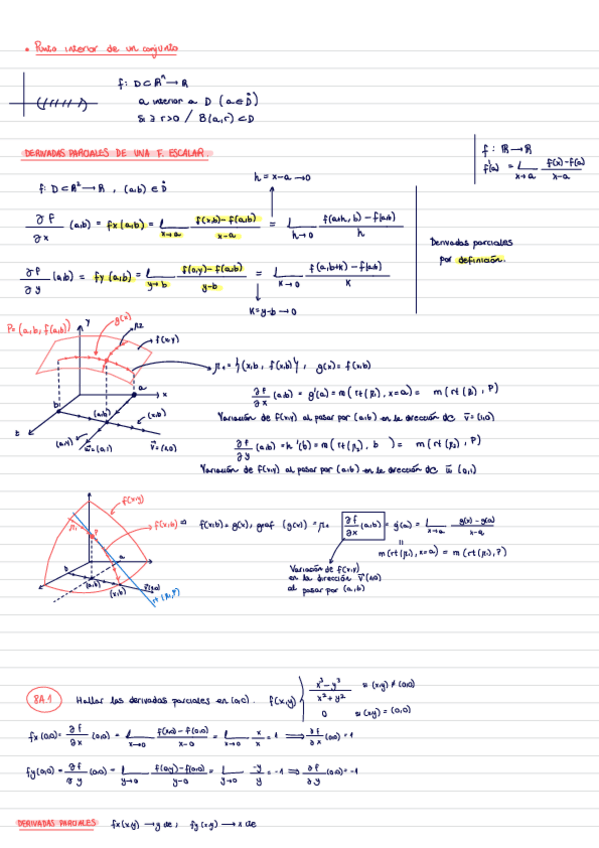 • Punto interior de un conjunto
f: D⊂ℝⁿ → ℝ
a interior a D (a∈D̊)
Si ∃ r>0 / B(a,r) ⊂ D
DERIVADAS PARCIALES DE UNA F. ESCALAR.
f: ℝ → ℝ
f'(a) = L x→a f(x)-f(a) / x-a
f: D⊂ℝ² → ℝ, (a,b) ∈ D̊
h = x-a → 0
∂f/∂x (a,b) = fx(a,b) = L x→a f(x,b)-f(a,b) / x-a = L h→0 f(a+h,b)-f(a,b) / h
Derivadas parciales
por definición.
∂f/∂y (a,b) = fy(a,b) = L y→b f(a,y)-f(a,b) / y-b = L k→0 f(a,b+k)-f(a,b) / k
k = y-b → 0
P=(a,b,f(a,b))
y
g(x)
μ2
f(x,y)
a
x
b
(a,b)
(x,b)
(a,y)
w̄=(0,1)
v̄=(1,0)
μ₁ = {(x,b, f(x,b)}, g(x) = f(x,b)
∂f/∂x (a,b) = g'(a) = m(rt(μ₁), x=a) = m(rt(μ₁), P)
Variación de f(x,y) al pasar por (a,b) en la dirección de v̄=(1,0)
∂f/∂y (a,b) = h'(b) = m(rt(μ₂), b) = m(rt(μ₂), P)
Variación de f(x,y) al pasar por (a,b) en la dirección de w̄ (0,1)
f(x,y)
μ₁
P
f(x,b) ⇒ f(x,b) = g(x), graf (g(x)) = μ₁
∂f/∂x (a,b) = g'(a) = L x→a g(x)-g(a) / x-a
m(rt(μ₁), x=a) = m(rt(μ₁), P)
a
b
(a,b)
(x,b)
v̄(1,0)
rt(μ₁,P)
Variación de f(x,y)
en la dirección v̄(1,0)
al pasar por (a,b)
8A.1 Hallar las derivadas parciales en (0,0). f(x,y) { x³-y³ / x²+y² = (x,y) ≠ (0,0)
0 = (x,y) = (0,0)
fx(0,0) = ∂f/∂x (0,0) = L x→0 f(x,0)-f(0,0) / x-0 = L x→0 x/x = 1 ⟹ ∂f/∂x (0,0) = 1
fy(0,0) = ∂f/∂y (0,0) = L y→0 f(0,y)-f(0,0) / y-0 = L y→0 -y/y = -1 ⟹ ∂f/∂y (0,0) = -1
DERIVADAS PARCIALES fx(x,y) → y cte, fy(x,y) → x cte